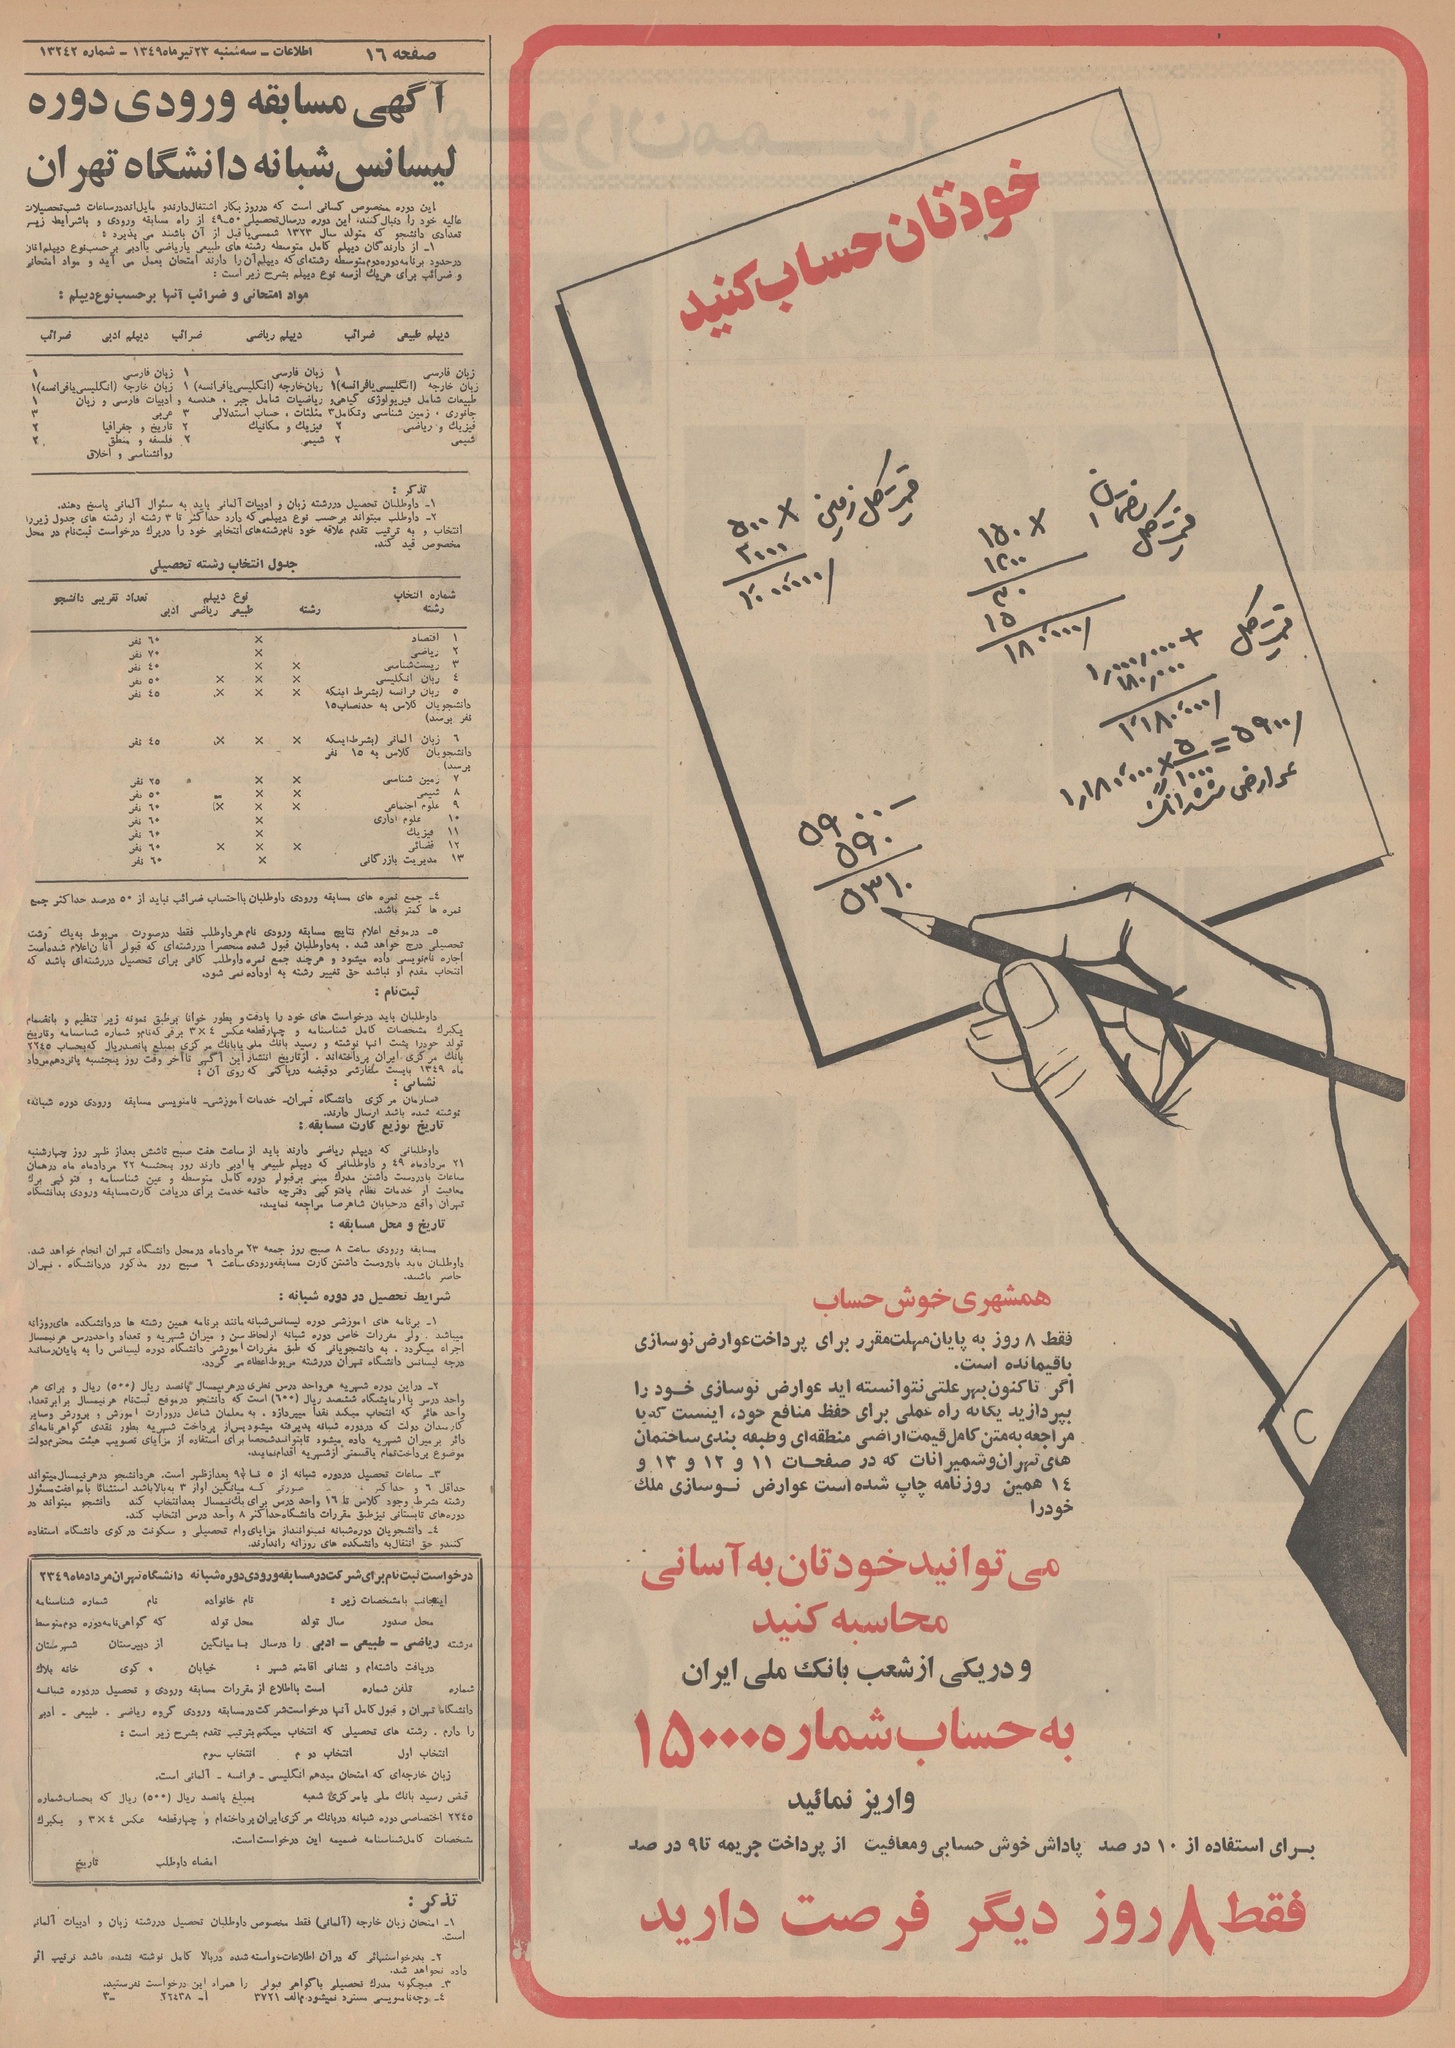 صفحه ۱۶
اطلاعات ـ سه‌شنبه ۲۳ تیرماه ۱۳۴۹ ـ شماره ۱۳۲۴۲
خودتان حساب کنید
قیمت کل زمین
۵۰۰ ×
۲۰۰۰
۱،۰۰۰،۰۰۰/
قیمت کل ساختمان
۱۵۰ ×
۱۲۰۰
۳۰
۱۵
۱۸۰،۰۰۰/
قیمت کل
۱،۰۰۰،۰۰۰ +
۱۸۰،۰۰۰
۱،۱۸۰،۰۰۰/
۱،۱۸۰،۰۰۰ × ۵/۱۰۰۰ = ۵۹۰۰/
۵۹۰۰ -
۵۹۰
۵۳۱۰
همشهری خوش حساب
فقط ۸ روز به پایان مهلت مقرر برای پرداخت عوارض نوسازی
باقیمانده است.
اگر تاکنون بهر علتی نتوانسته اید عوارض نوسازی خود را
بپردازید یگانه راه عملی برای حفظ منافع خود، اینست که با
مراجعه به متن کامل قیمت اراضی منطقه‌ای و طبقه بندی ساختمان
های تهران و شمیرانات که در صفحات ۱۱ و ۱۲ و ۱۳ و
۱۴ همین روزنامه چاپ شده است عوارض نوسازی ملک
خود را
می‌توانید خودتان به آسانی
محاسبه کنید
و در یکی از شعب بانک ملی ایران
به حساب شماره ۱۵۰۰۰
واریز نمائید
برای استفاده از ۱۰ در صد پاداش خوش حسابی و معافیت از پرداخت جریمه تا ۹ در صد
فقط ۸ روز دیگر فرصت دارید
آگهی مسابقه ورودی دوره
لیسانس شبانه دانشگاه تهران
این دوره مخصوص کسانی است که در روز بکار اشتغال دارند و مایل‌اند در ساعات شب تحصیلات
عالیه خود را دنبال کنند، این دوره در سال تحصیلی ۵۰ـ۴۹ از راه مسابقه ورودی و با شرایط زیر
تعدادی دانشجو که متولد سال ۱۳۲۳ شمسی یا قبل از آن باشند می پذیرد :
۱ـ از دارندگان دیپلم کامل متوسطه رشته های طبیعی یا ریاضی یا ادبی برحسب نوع دیپلم آنان
در حدود برنامه دوره دوم متوسطه رشته‌ای که دیپلم آن را دارند امتحان بعمل می آید و مواد امتحانی
و ضرائب برای هریک از سه نوع دیپلم بشرح زیر است :
مواد امتحانی و ضرائب آنها برحسب نوع دیپلم :
دیپلم طبیعی ضرائب دیپلم ریاضی ضرائب دیپلم ادبی ضرائب
زبان فارسی ۱ زبان فارسی ۱ زبان فارسی ۱
زبان خارجه (انگلیسی یا فرانسه) ۱ زبان خارجه (انگلیسی یا فرانسه) ۱ زبان خارجه (انگلیسی یا فرانسه) ۱
طبیعیات شامل فیزیولوژی گیاهی و ریاضیات شامل جبر ، هندسه و ادبیات فارسی و زبان ۱
جانوری ، زمین شناسی و تکامل ۳ مثلثات ، حساب استدلالی ۳ عربی ۳
فیزیک و ریاضی ۲ فیزیک و مکانیک ۲ تاریخ و جغرافیا ۲
شیمی ۲ شیمی ۲ فلسفه و منطق ۲
روانشناسی و اخلاق
تذکر :
۱ـ داوطلبان تحصیل در رشته زبان و ادبیات آلمانی باید به سئوال آلمانی پاسخ دهند.
۲ـ داوطلب میتواند برحسب نوع دیپلمی که دارد حداکثر تا ۳ رشته از رشته های جدول زیر را
انتخاب و به ترتیب تقدم علاقه خود نام رشته‌های انتخابی خود را در برگ درخواست ثبت‌نام در محل
مخصوص قید کند.
جدول انتخاب رشته تحصیلی
شماره انتخاب رشته نوع دیپلم تعداد تقریبی دانشجو
رشته طبیعی ریاضی ادبی
۱ اقتصاد × ۶۰ نفر
۲ ریاضی × ۷۰ نفر
۳ زیست‌شناسی × × ۴۰ نفر
۴ زبان انگلیسی × × × ۵۰ نفر
۵ زبان فرانسه (بشرط اینکه × × × ۴۵ نفر
دانشجویان کلاس به حدنصاب ۱۵
نفر برسد)
۶ زبان آلمانی (بشرط اینکه × × × ۴۵ نفر
دانشجویان کلاس به ۱۵ نفر
برسد)
۷ زمین شناسی × × ۲۵ نفر
۸ شیمی × × ـ ۵۰ نفر
۹ علوم اجتماعی × × × ۶۰ نفر
۱۰ علوم اداری × ۶۰ نفر
۱۱ فیزیک × ۶۰ نفر
۱۲ قضائی × × × ۶۰ نفر
۱۳ مدیریت بازرگانی × ۶۰ نفر
۴ـ جمع نمره های مسابقه ورودی داوطلبان با احتساب ضرائب نباید از ۵۰ درصد حداکثر جمع
نمره ها کمتر باشد.
۵ـ در موقع اعلام نتایج مسابقه ورودی نام هر داوطلب فقط در صورت مربوط به یک رشته
تحصیلی درج خواهد شد . به داوطلبان قبول شده منحصرا در رشته‌ای که قبولی آنان اعلام شده است
اجازه نام‌نویسی داده میشود و هرچند جمع نمره داوطلب کافی برای تحصیل در رشته‌ای باشد که
انتخاب مقدم او نباشد حق تغییر رشته به او داده نمی شود.
ثبت‌نام :
داوطلبان باید درخواست های خود را بادقت و بطور خوانا برطبق نمونه زیر تنظیم و بانضمام
یکبرگ مشخصات کامل شناسنامه و چهارقطعه عکس ۴×۳ برقی که نام و شماره شناسنامه و تاریخ
تولد خود را پشت آنها نوشته و رسید بانک ملی یا بانک مرکزی بمبلغ پانصد ریال که بحساب ۲۲۴۵
بانک مرکزی ایران پرداخته‌اند . از تاریخ انتشار این آگهی تا آخر وقت روز پنجشنبه پانزدهم مرداد
ماه ۱۳۴۹ با پست سفارشی دوقبضه در پاکتی که روی آن :
نشانی :
«سازمان مرکزی دانشگاه تهران ـ خدمات آموزشی ـ نامنویسی مسابقه ورودی دوره شبانه»
نوشته شده باشد ارسال دارند.
تاریخ توزیع کارت مسابقه :
داوطلبانی که دیپلم ریاضی دارند باید از ساعت هفت صبح تا شش بعد از ظهر روز چهارشنبه
۲۱ مرداد ماه ۴۹ و داوطلبانی که دیپلم طبیعی یا ادبی دارند روز پنجشنبه ۲۲ مرداد ماه در همان
ساعات با در دست داشتن مدرک مبنی بر قبولی دوره کامل متوسطه و عین شناسنامه و فتوکپی برگ
معافیت از خدمات نظام یا فتوکپی دفترچه خاتمه خدمت برای دریافت کارت مسابقه ورودی بدانشگاه
تهران واقع در خیابان شاهرضا مراجعه نمایند.
تاریخ و محل مسابقه :
مسابقه ورودی ساعت ۸ صبح روز جمعه ۲۳ مرداد ماه در محل دانشگاه تهران انجام خواهد شد.
داوطلبان باید با در دست داشتن کارت مسابقه ورودی ساعت ۶ صبح روز مذکور در دانشگاه تهران
حاضر باشند.
شرایط تحصیل در دوره شبانه :
۱ـ برنامه های آموزشی دوره لیسانس شبانه مانند برنامه همین رشته ها در دانشکده های روزانه
میباشد . ولی مقررات خاص دوره شبانه از لحاظ سن و میزان شهریه و تعداد واحد درس هر نیمسال
اجراء میگردد . به دانشجویانی که طبق مقررات آموزشی دانشگاه دوره لیسانس را به پایان رسانند
درجه لیسانس دانشگاه تهران در رشته مربوط اعطاء می گردد.
۲ـ در این دوره شهریه هر واحد درس نظری در هر نیمسال پانصد ریال (۵۰۰) ریال و برای هر
واحد درس یا آزمایشگاه ششصد ریال (۶۰۰) است که دانشجو در موقع ثبت‌نام هر نیمسال برابر تعداد
واحد هائی که انتخاب میکند نقداً میپردازد . به معلمان شاغل در وزارت آموزش و پرورش و سایر
کارمندان دولت که در دوره شبانه پذیرفته میشود پس از پرداخت شهریه بطور نقدی گواهی‌نامه‌ای
دائر بر میزان شهریه داده میشود تا بتوانند شخصا برای استفاده از مزایای تصویب هیئت محترم دولت
موضوع پرداخت تمام یا قسمتی از شهریه اقدام نمایند.
رشته بشرط وجود کلاس تا ۱۶ واحد درس برای یک نیمسال بعد انتخاب کند دانشجو میتواند در
دوره‌های تابستانی نیز طبق مقررات دانشگاه حداکثر ۸ واحد درس انتخاب کند.
۴ـ دانشجویان دوره شبانه نمیتوانند از مزایای وام تحصیلی و سکونت در کوی دانشگاه استفاده
کنند و حق انتقال به دانشکده های روزانه را ندارند.
درخواست ثبت نام برای شرکت در مسابقه ورودی دوره شبانه دانشگاه تهران مرداد ماه ۲۳۴۹
اینجانب با مشخصات زیر : نام خانواده نام شماره شناسنامه
محل صدور سال تولد محل تولد که گواهی‌نامه دوره دوم متوسط
رشته ریاضی ـ طبیعی ـ ادبی را در سال با میانگین از دبیرستان شهرستان
دریافت داشته‌ام و نشانی اقامتم شهر : خیابان کوی خانه پلاک
شماره تلفن شماره است با اطلاع از مقررات مسابقه ورودی و تحصیل در دوره شبانه
دانشگاه تهران و قبول کامل آنها درخواست شرکت در مسابقه ورودی گروه ریاضی ـ طبیعی ـ ادبی
را دارم . رشته های تحصیلی که انتخاب میکنم بترتیب تقدم بشرح زیر است :
انتخاب اول انتخاب دوم انتخاب سوم
زبان خارجه‌ای که امتحان میدهم انگلیسی ـ فرانسه ـ آلمانی است.
قبض رسید بانک ملی یا مرکزی شعبه بمبلغ پانصد ریال (۵۰۰) ریال که بحساب شماره
۲۲۴۵ اختصاصی دوره شبانه در بانک مرکزی ایران پرداخته‌ام و چهارقطعه عکس ۴×۳ و یکبرگ
مشخصات کامل شناسنامه ضمیمه این درخواست است.
امضاء داوطلب تاریخ
تذکر :
۱ـ امتحان زبان خارجه (آلمانی) فقط مخصوص داوطلبان تحصیل در رشته زبان و ادبیات آلمانی
است.
۲ـ بدرخواستهائی که در آن اطلاعات خواسته شده در بالا کامل نوشته نشده باشد ترتیب اثر
داده نخواهد شد.
۳ـ هیچگونه مدرک تحصیلی یا گواهی قبولی را همراه این درخواست نفرستید.
۴ـ وجه نامنویسی مسترد نمیشود م الف ۳۷۲۱ آ ـ ۲۲۴۳۸ ۳ـ